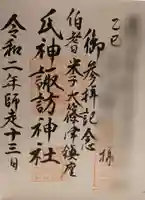 乙巳
御参拝記念
伯耆国米子大篠津鎮座
氏神諏訪神社
令和二年師走十三日